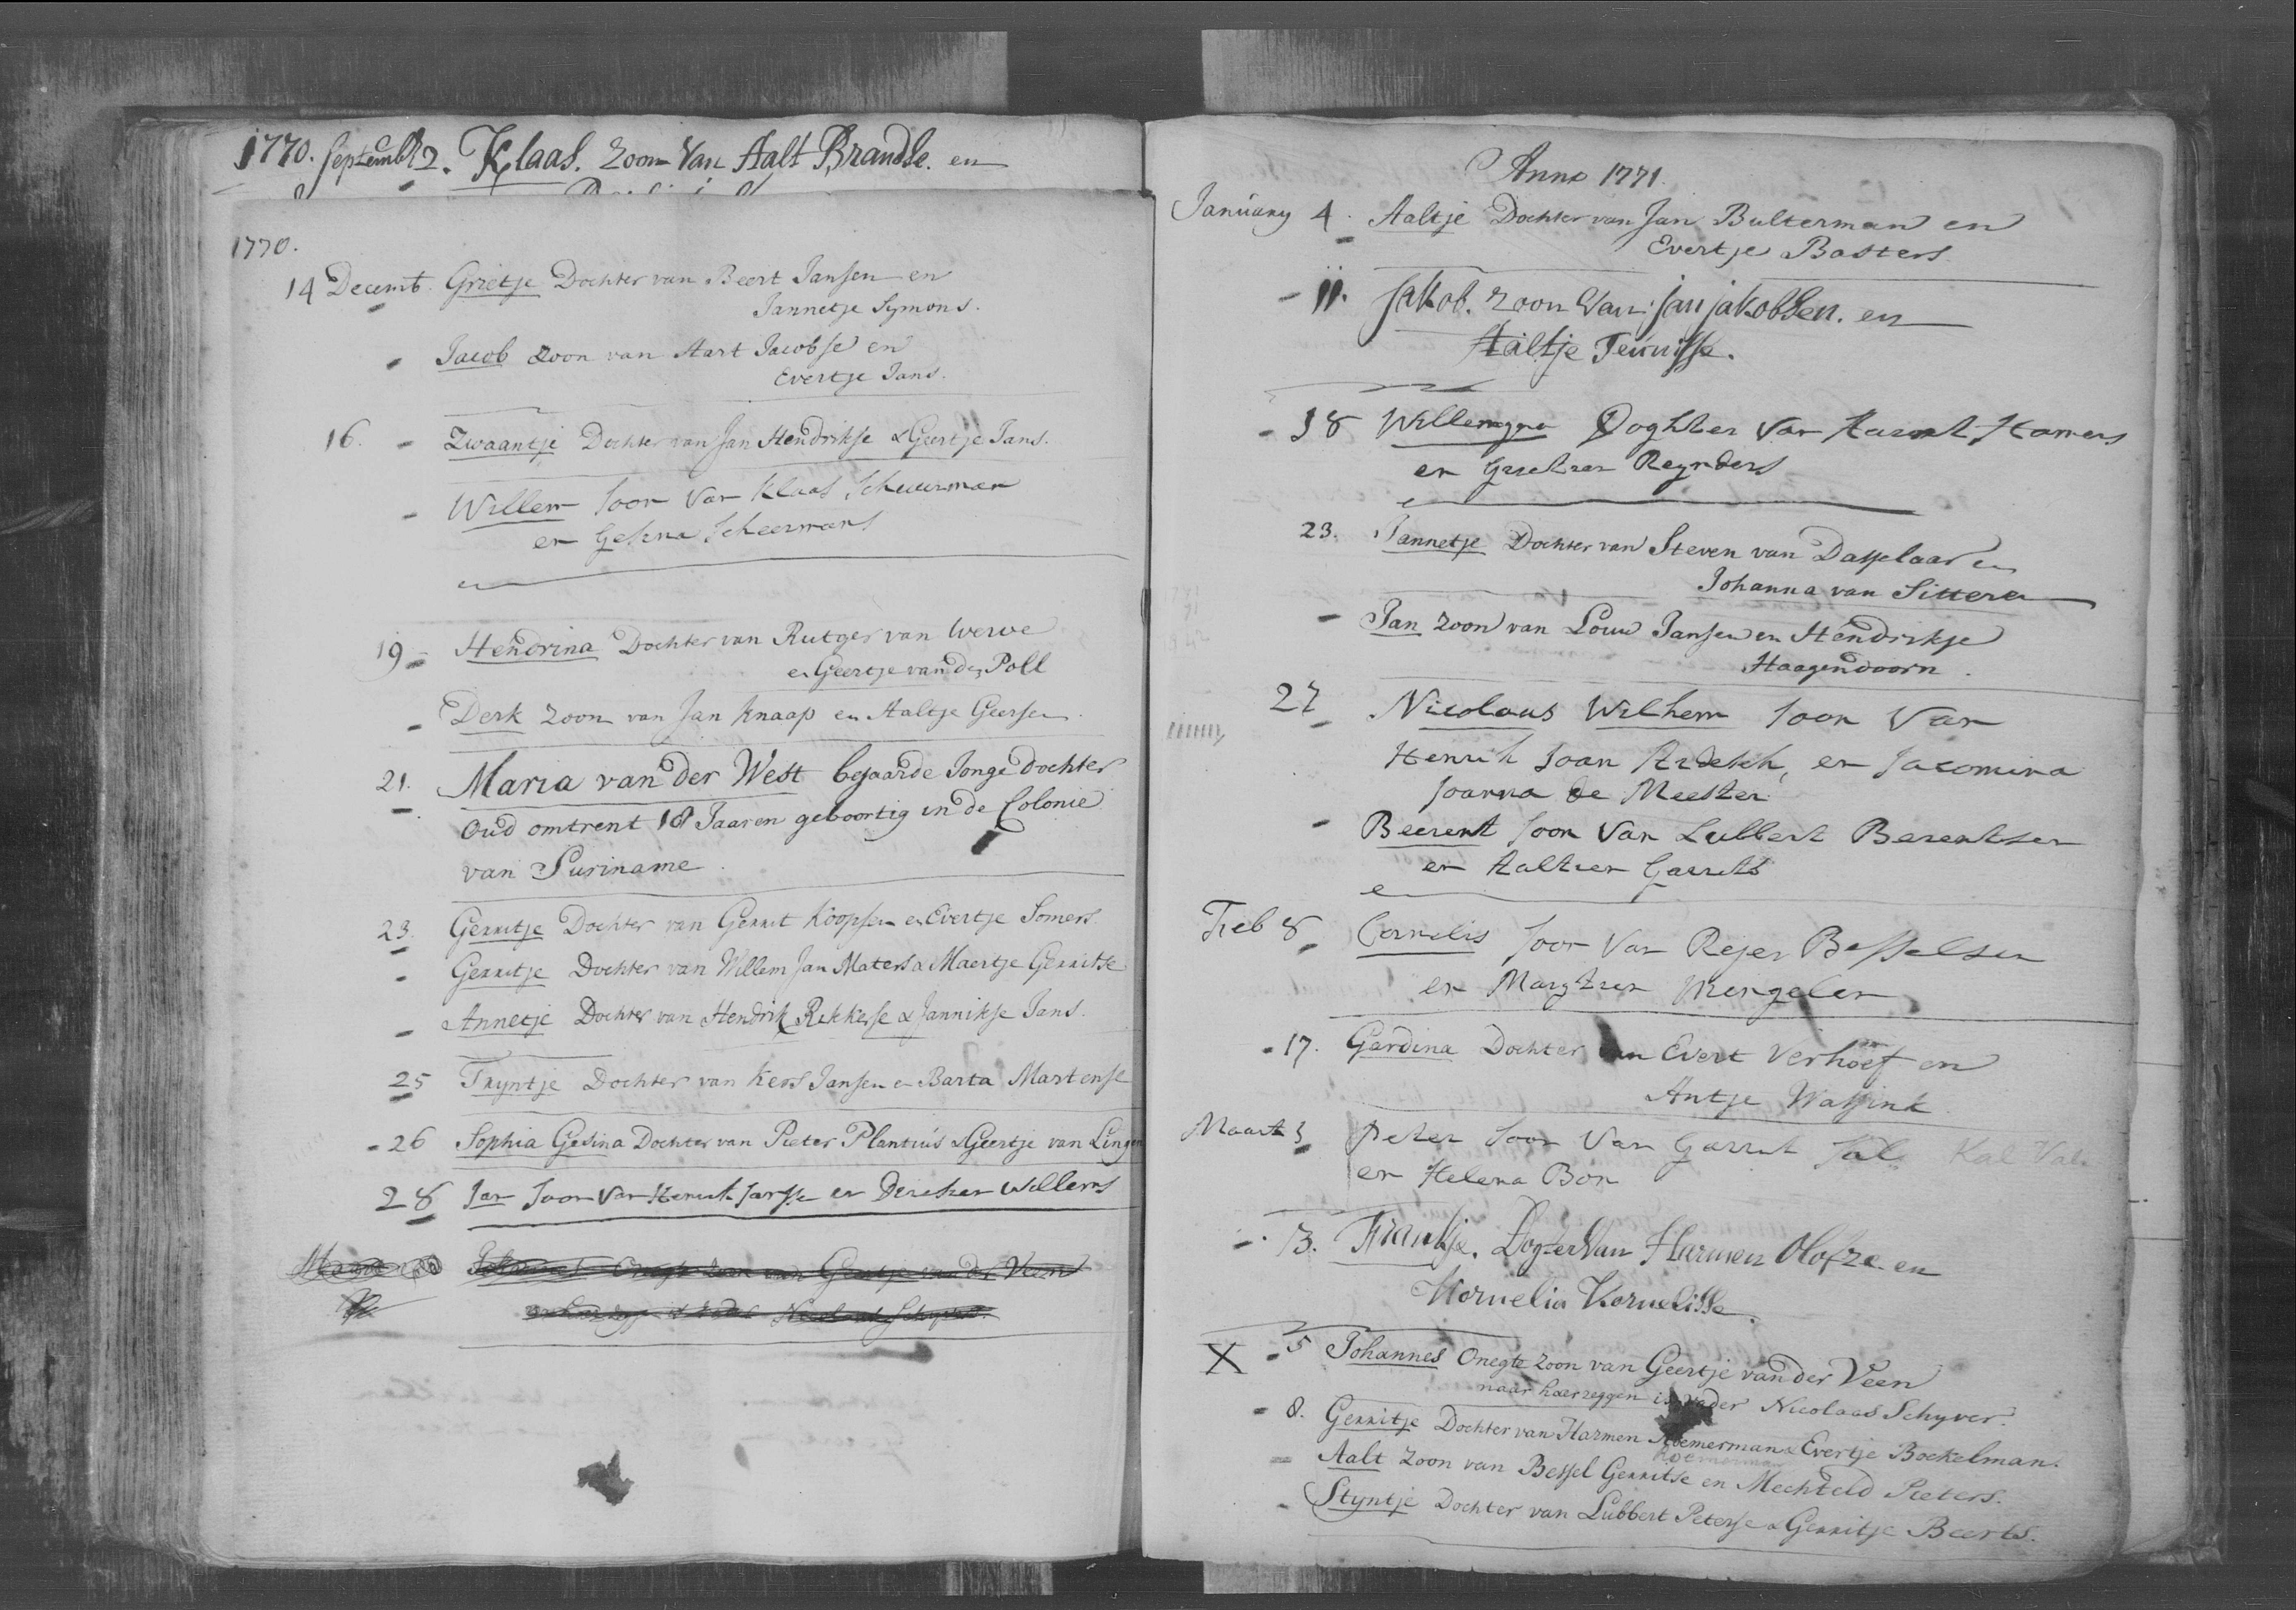 1770. Septembr 2. Klaas. zoon van Aalt Brandse. en
1770.
14 Decemb. Grietje Dochter van Beert Jansen en
Jannetje Symons.
Jacob zoon van Aart Jacobse en
Evertje Jans.
16. Zwaantje Dochter van Jan Hendrikse & Geertje Jans.
Willem Soon van Klaas Schuurman
en Gesina Scheermans
19 Hendrina Dochter van Rutger van Werve
en Geertje van der Poll
Derk zoon van Jan Knaap en Aaltje Geersen.
21. Maria van der West bejaarde Jonge dochter
Oud omtrent 18 Jaaren geboortig in de Colonie
van Suriname.
23. Gerritje Dochter van Gerrit Koopsen en Evertje Somers
Gerritje Dochter van Willem Jan Maters & Maertje Gerritse
Annetje Dochter van Hendrik Rekkerse & Jannikje Jans.
25 Tryntje Dochter van Kers Jansen en Barta Martense
26 Sophia Gesina Dochter van Pieter Plantius & Geertje van Lingen
28 Jan Soon van Henrik Jansse en Dirckien Willems
Johannes Onegte zoon van Geertje van der Veen
Anno 1771.
January 4. Aaltje Dochter van Jan Bulterman en
Evertje Basters.
11. Jakob. zoon van Jan Jakobsen. en
Aaltje Teunisse.
18 Willemyna Doghter van Aarent Hamers
en Grietien Reynders
23. Jannetje Dochter van Steven van Dasselaar en
Johanna van Sittera
Jan zoon van Louw Jansen en Hendrikje
Haagendoorn.
27 Nicolaas Wilhem Soon van
Henrik Joan Ardesch, en Jacomina
Joanna de Meester
Beerent Soon van Lubbert Berentsen
en Aaltien Garrits
Feb 8 Cornelis Soon van Rejer Besselsen
en Margrien Mengelen
17. Gardina Dochter van Evert Verhoef en
Antje Wassink
Maart 3 Peter Soon van Garrit Kal Kal
en Helena Bon
3. Frankje. Dogter van Harmen Olofze. en
Kornelia Kornelisse.
X 5 Johannes Onegte zoon van Geertje van der Veen
naar haer zeggen is vader Nicolaas Schyver.
8. Gerritje Dochter van Harmen Roemerman & Evertje Boekelman.
Roemerman
Aalt zoon van Bessel Gerritse en Mechteld Peeters.
Styntje Dochter van Lubbert Peterse & Gerritje Beerts.